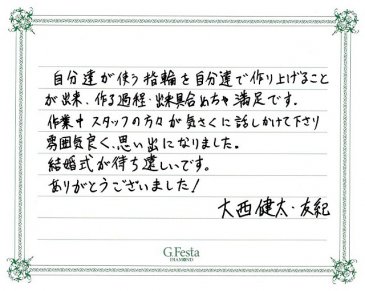 自分達が使う指輪を自分達で作り上げること
が出来、作る過程・出来具合めちゃ満足です。
作業中スタッフの方々が気さくに話しかけて下さり
雰囲気良く、思い出になりました。
結婚式が待ち遠しいです。
ありがとうございました!
大西健太・友紀
G.Festa
DIAMOND